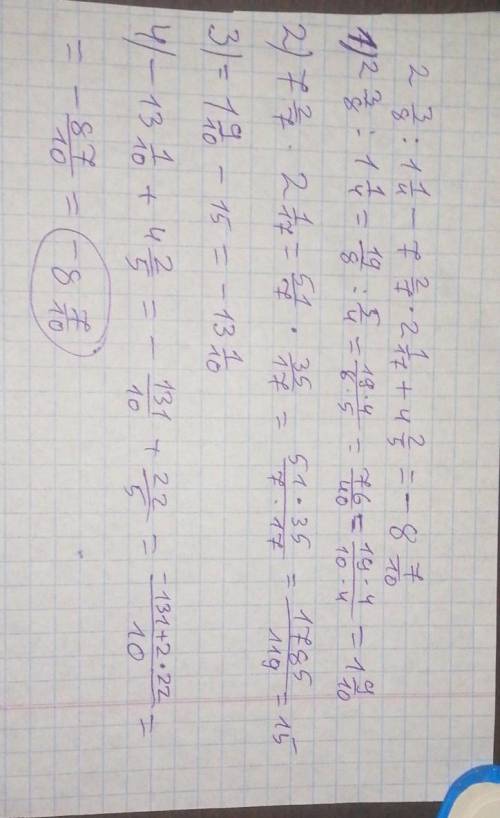 2 3/8 : 1 1/4 - 7 2/7 · 2 1/17 + 4 2/5 = -8 7/10
1) 2 3/8 : 1 1/4 = 19/8 : 5/4 = 19·4/8·5 = 76/40 = 19·4/10·4 = 1 9/10
2) 7 2/7 · 2 1/17 = 51/7 · 35/17 = 51·35/7·17 = 1785/119 = 15
3) = 1 9/10 - 15 = -13 1/10
4) -13 1/10 + 4 2/5 = -131/10 + 22/5 = -131+2·22/10 =
= -87/10 = -8 7/10